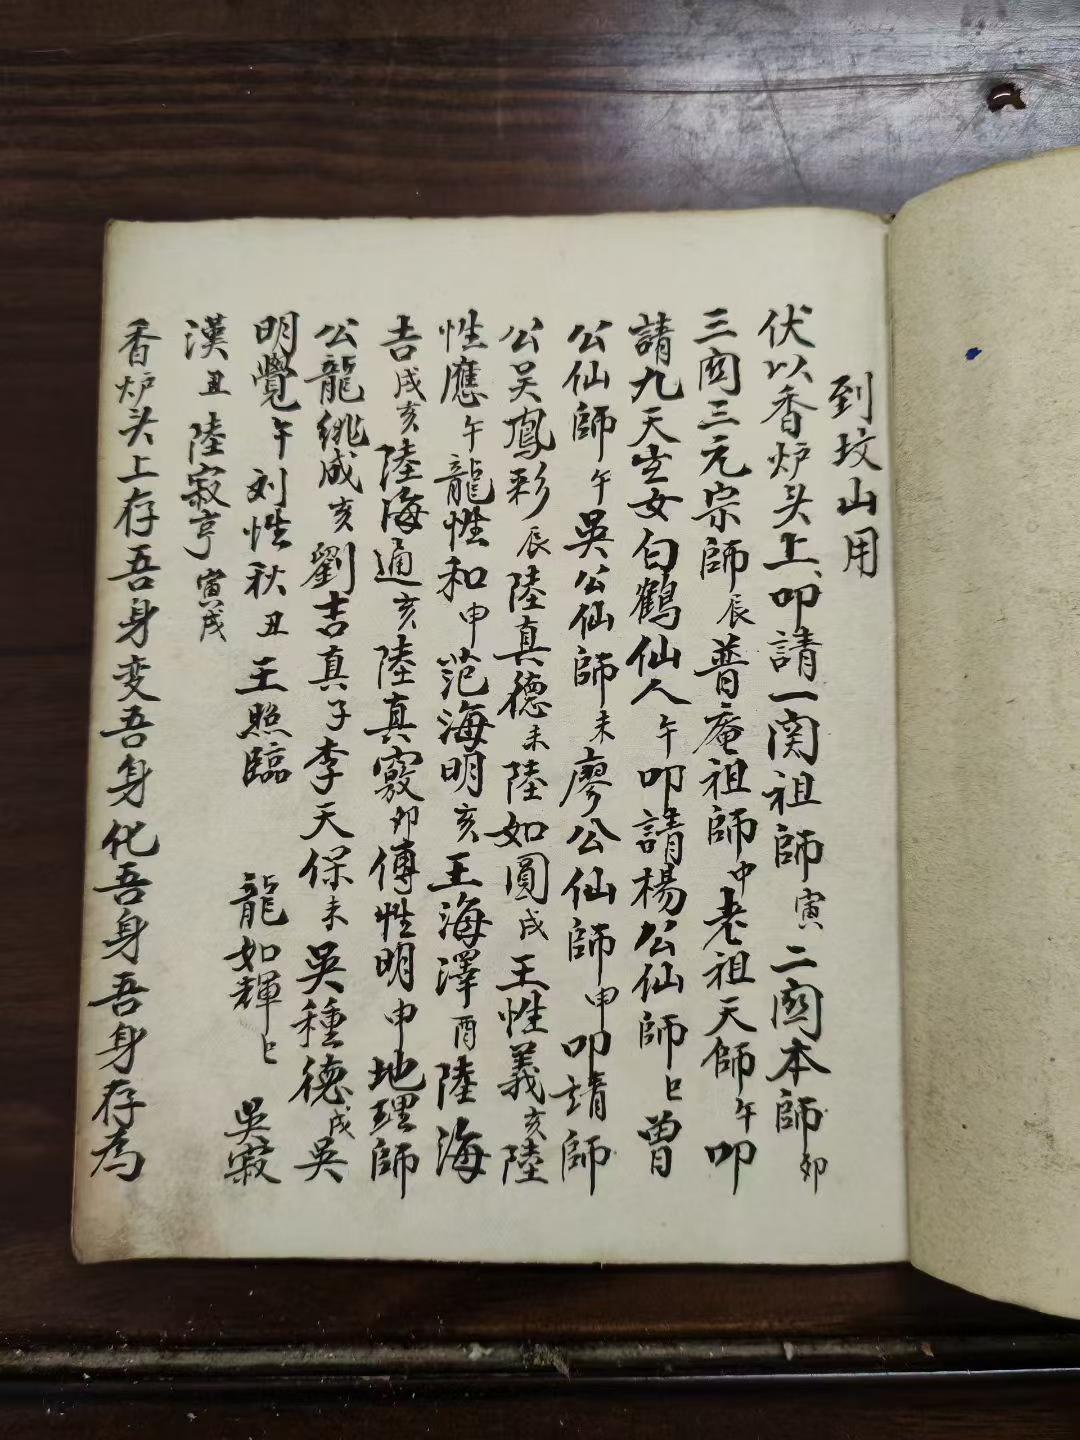 到坟山用
伏以香炉头上叩請一関祖師寅二関本師卯
三関三元宗師辰普庵祖師中老祖天師午叩
請九天玄女白鶴仙人午叩請楊公仙師巳曾
公仙師午吳公仙師未廖公仙師申叩請師
公吴鳳彩辰陸真德未陸如圓戌王性義亥陸
性應午龍性和申范海明亥王海澤酉陸海
吉戌亥陸海通亥陸真竅卯傅性明申地理師
公龍銚成亥劉吉真子李天保未吳種德戌吳
明覺午刘性秋丑王照臨 龍如輝巳 吳寂
漢丑陸寂亨寅戌
香炉头上存吾身变吾身化吾身吾身存為